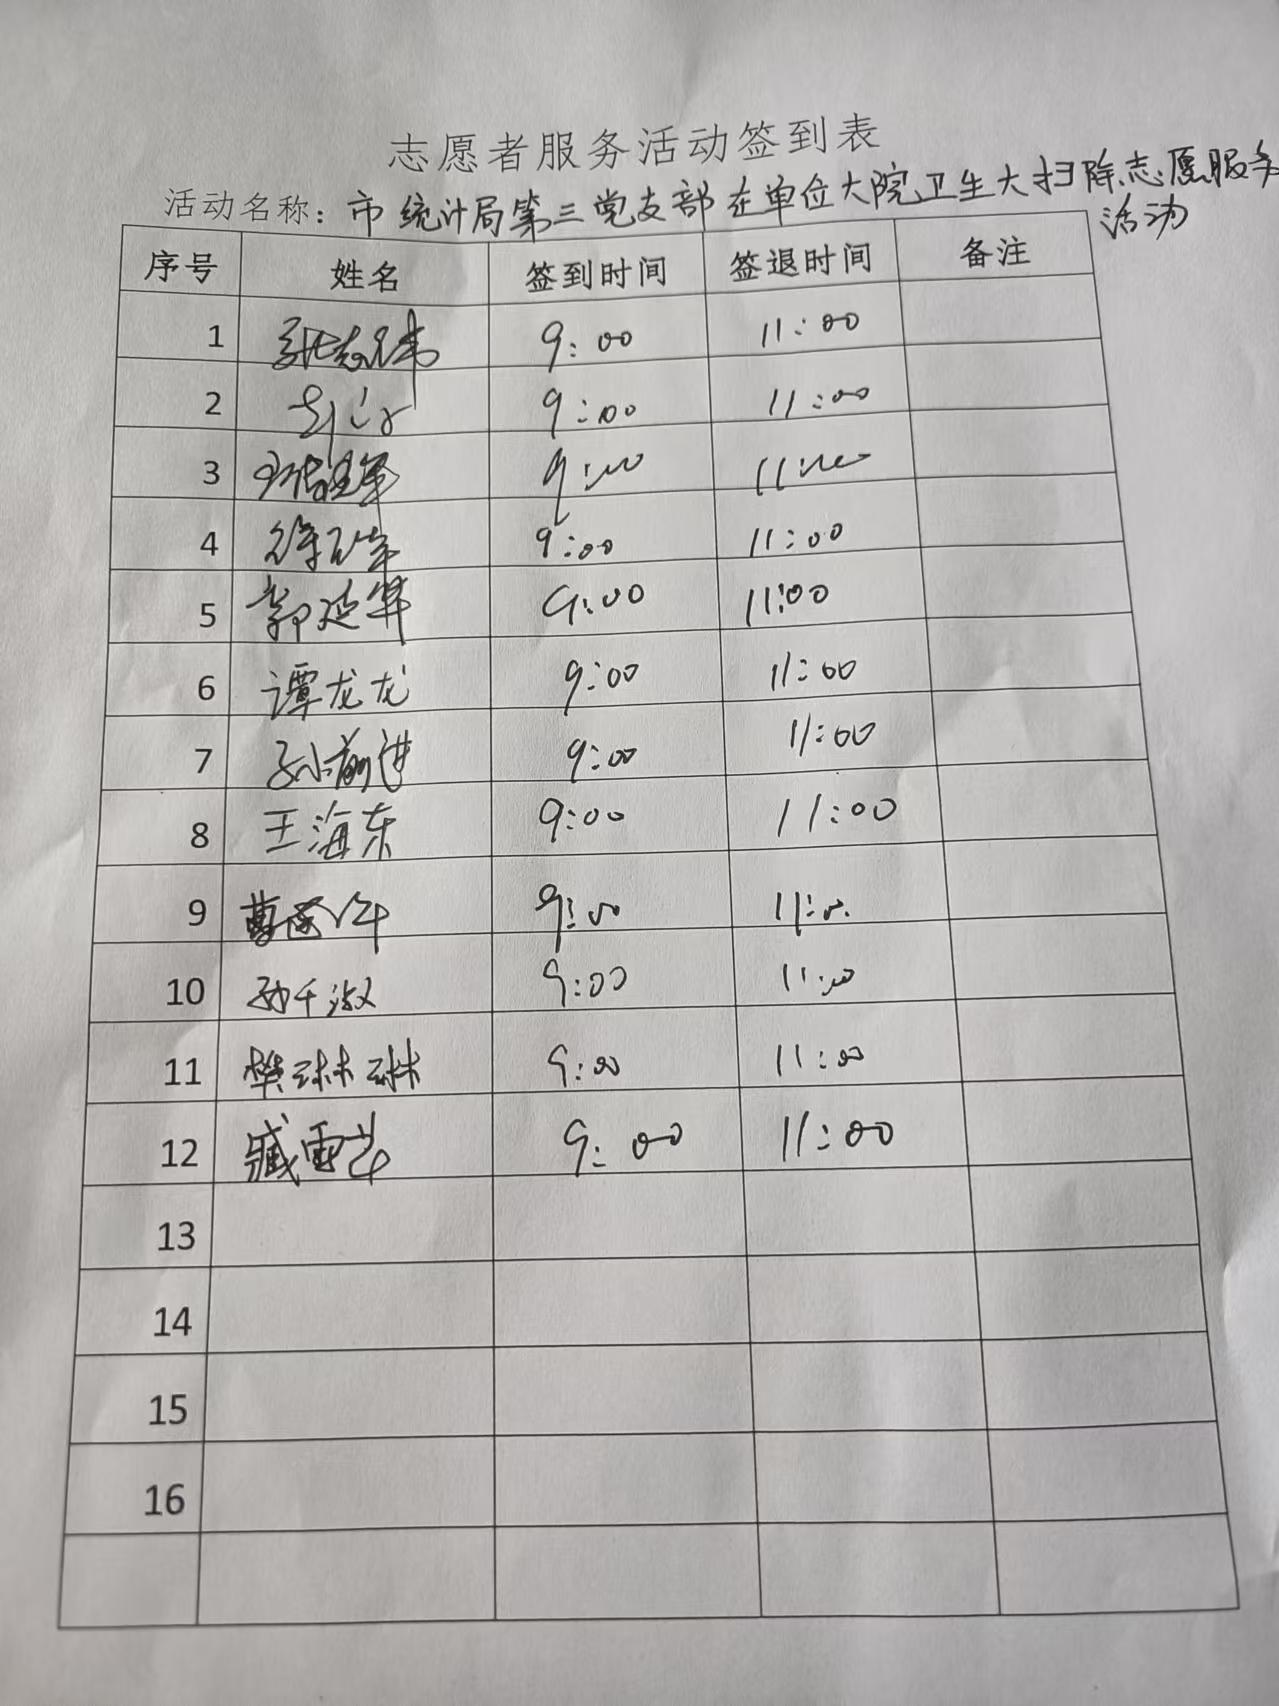 志愿者服务活动签到表
活动名称：市统计局第三党支部在单位大院卫生大扫除志愿服务
活动
序号 姓名 签到时间 签退时间 备注
1 9:00 11:00
2 9:00 11:00
3 9:00 11:00
4 9:00 11:00
5 郭延军 9:00 11:00
6 谭龙龙 9:00 11:00
7 孙前进 9:00 11:00
8 王海东 9:00 11:00
9 9:00 11:00
10 孙千淑 9:00 11:00
11 樊琳琳 9:00 11:00
12 臧雷 9:00 11:00
13
14
15
16